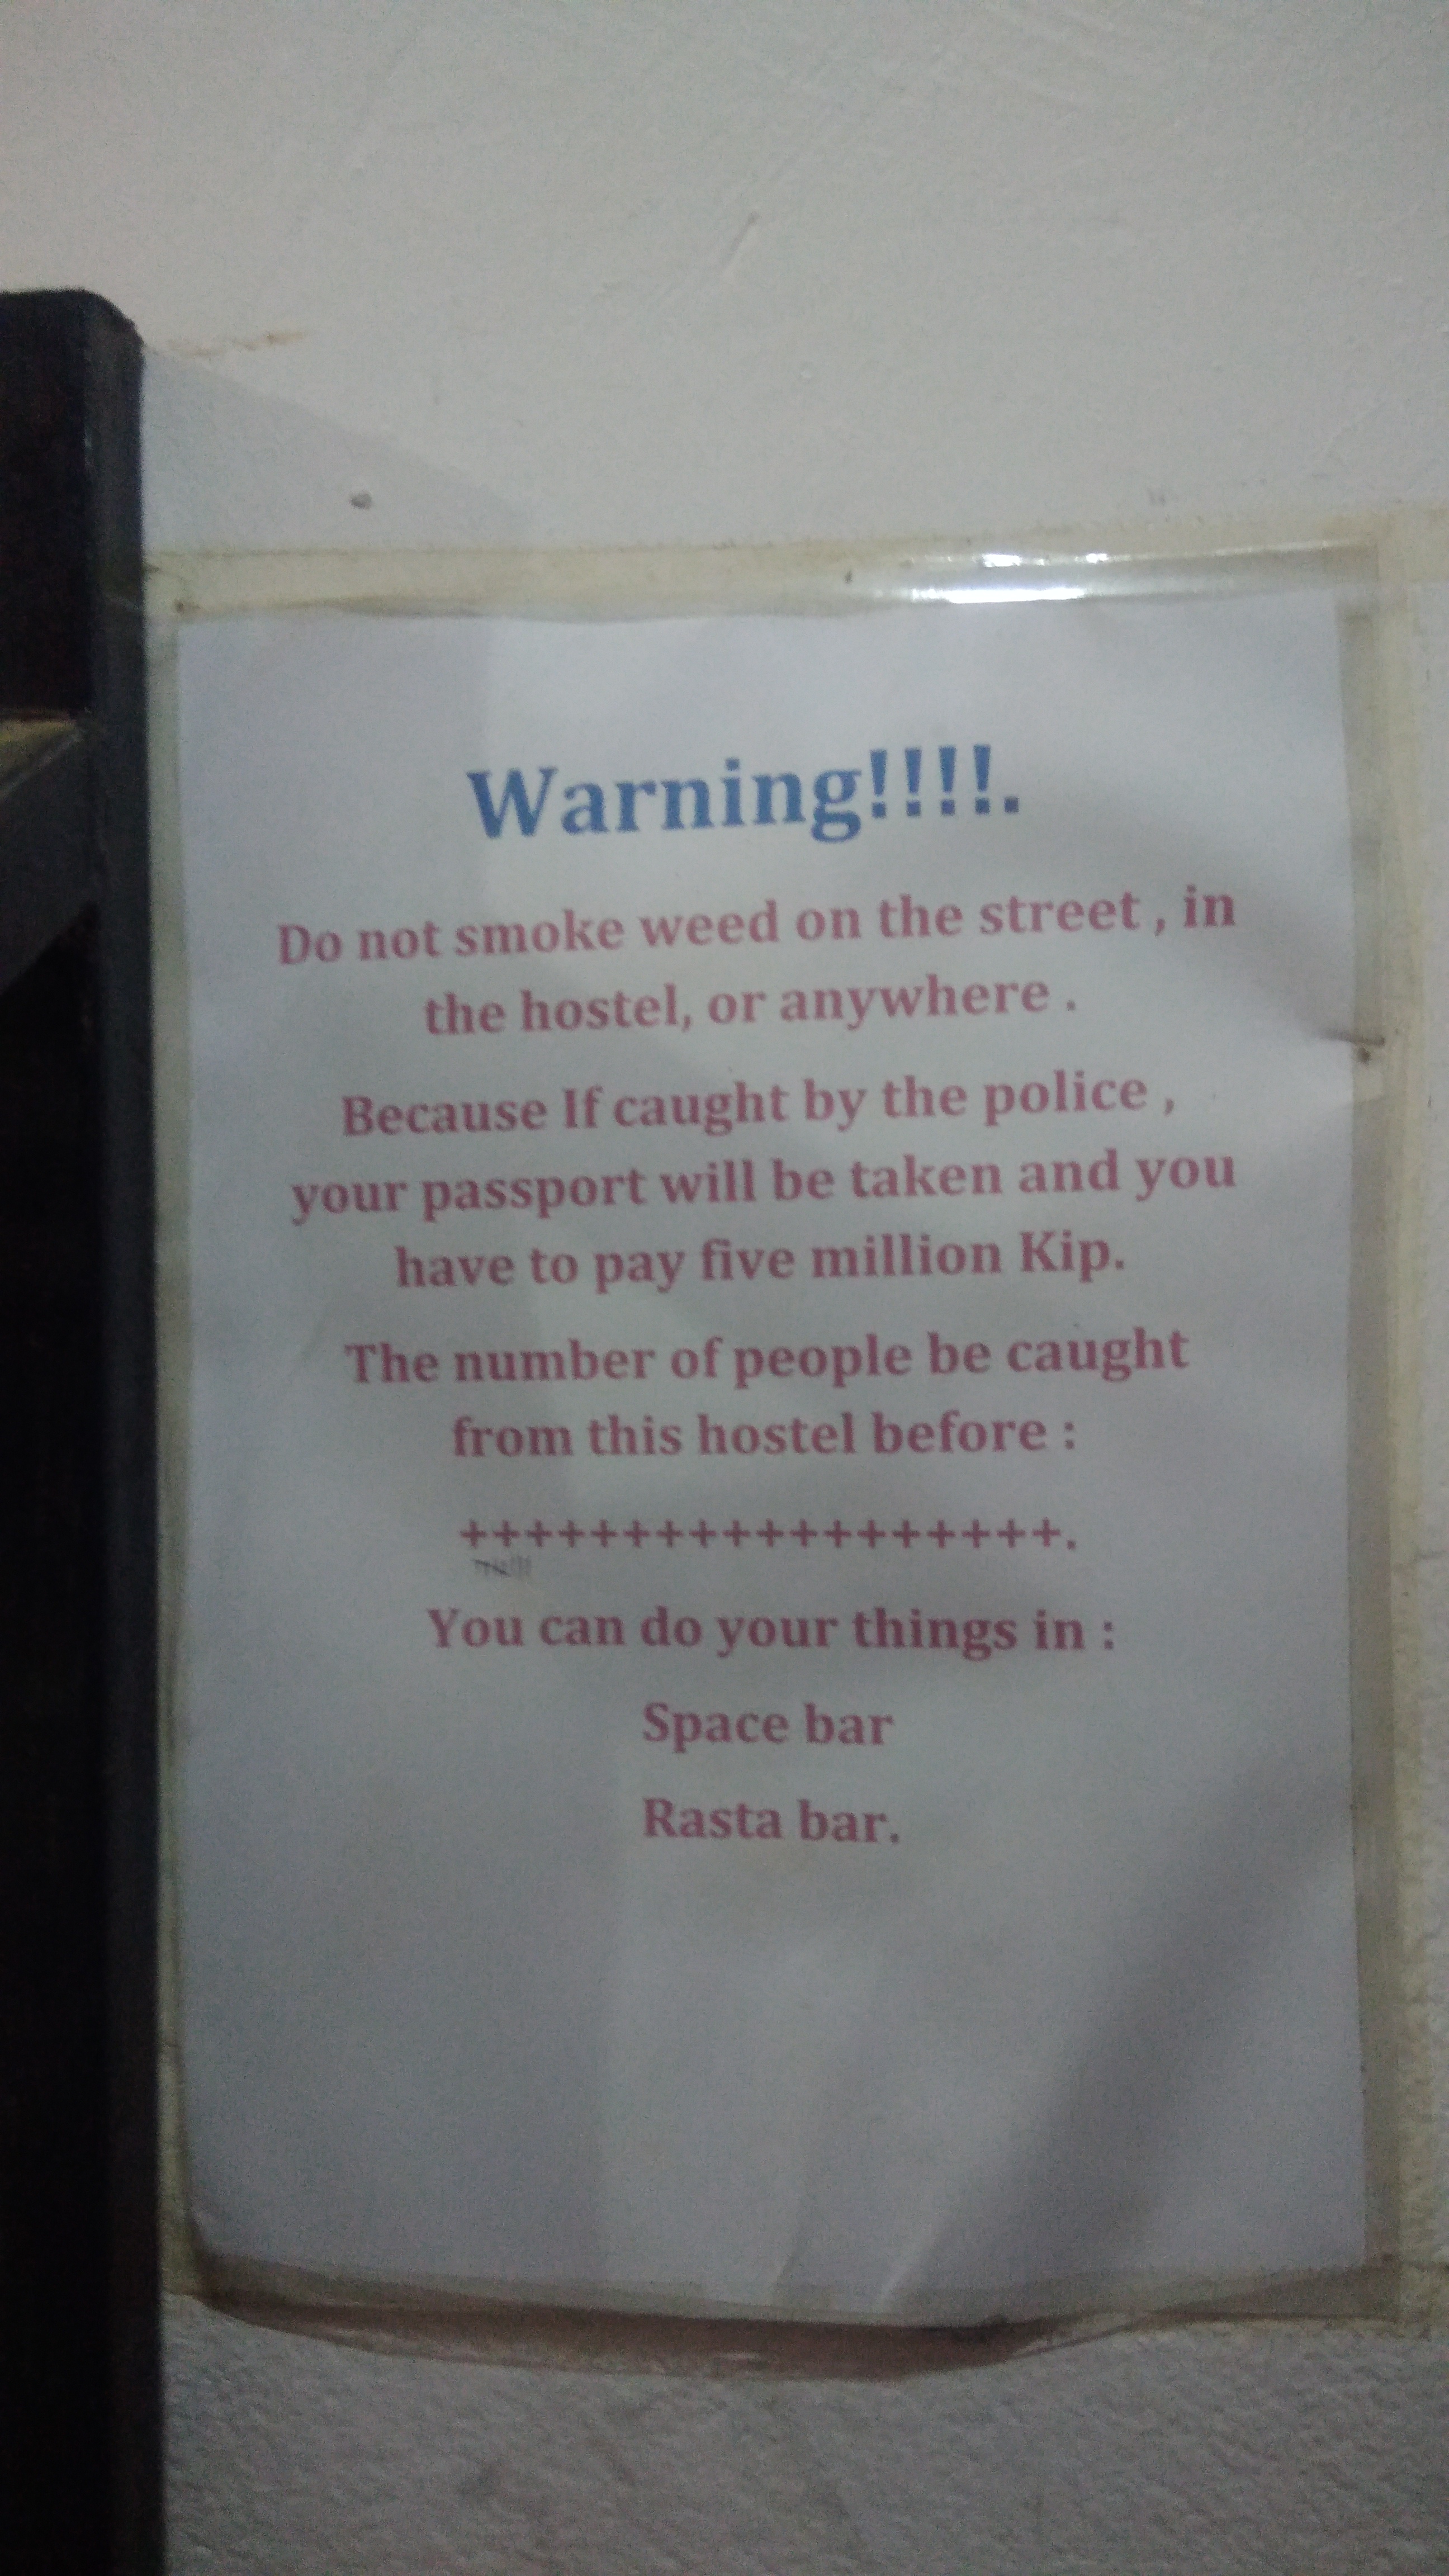 Warning!!!!.
Do not smoke weed on the street , in
the hostel, or anywhere .
Because If caught by the police ,
your passport will be taken and you
have to pay five million Kip.
The number of people be caught
from this hostel before :
++++++++++++++++++.
You can do your things in :
Space bar
Rasta bar.